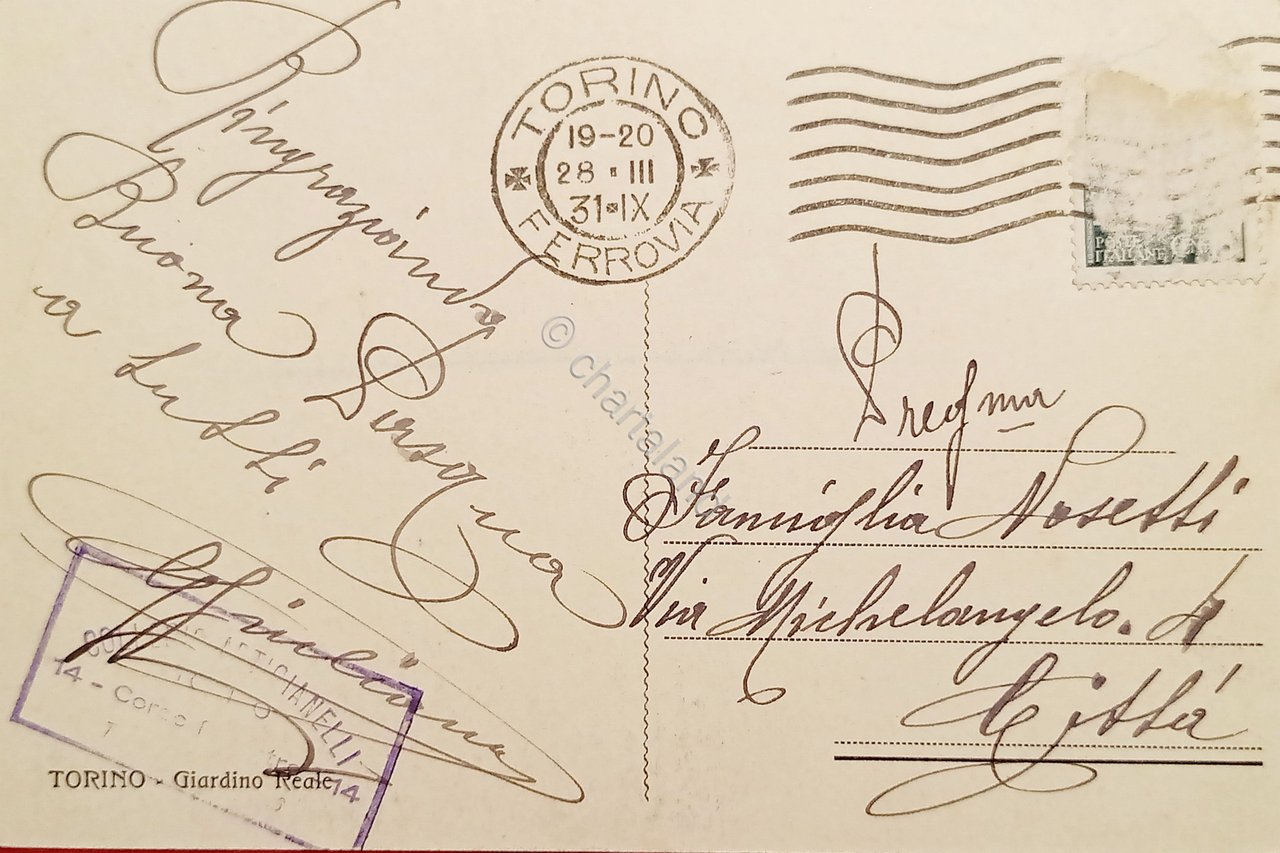 Ringraziando
Buona Pasqua
a tutti
TORINO
19-20
28 · III
31·IX
FERROVIA
POSTE
ITALIANE
© chartaland
Famiglia Nosetti
Via Michelangelo. 4
Cittá
ARTIGIANELLI
14 - Corso
14
TORINO - Giardino Reale